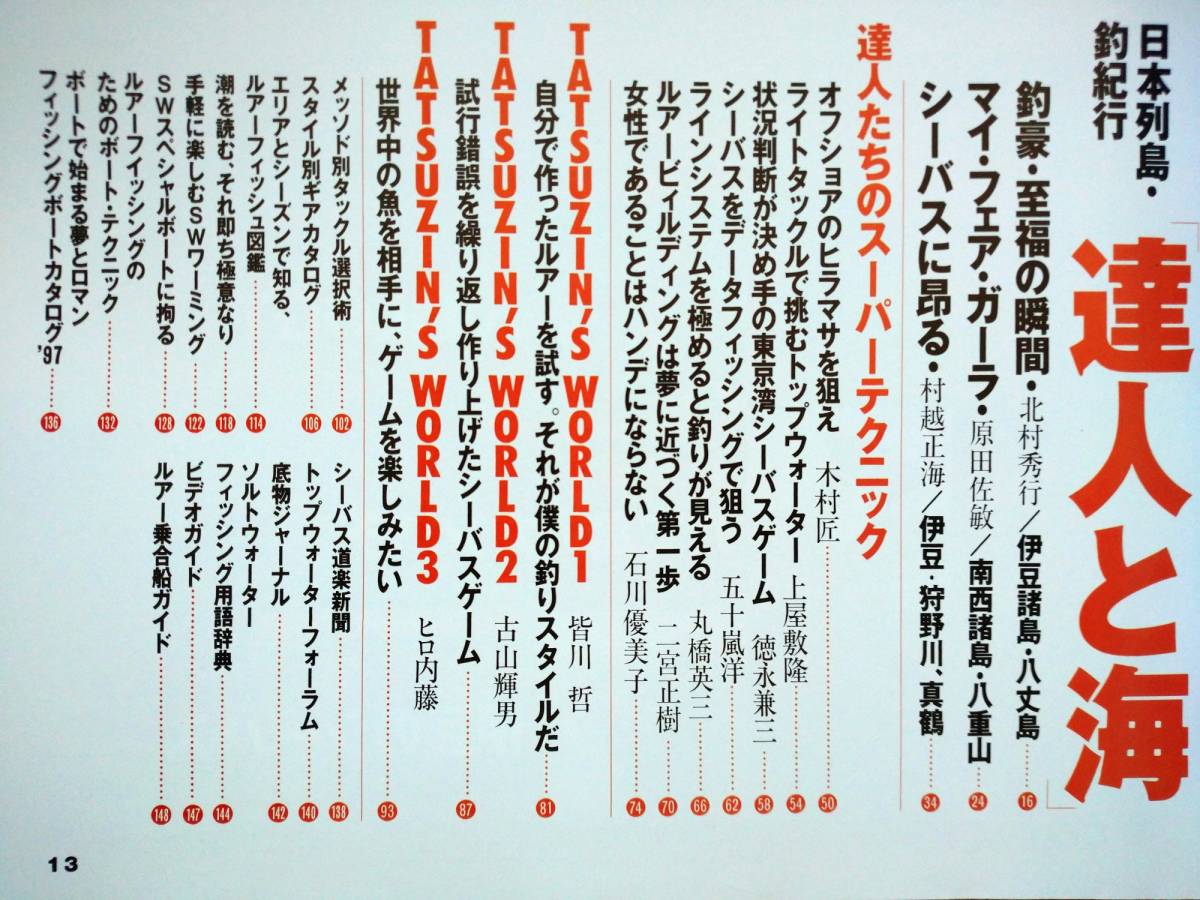 日本列島・
釣紀行
「達人と海」
釣豪・至福の瞬間・北村秀行／伊豆諸島・八丈島……16
マイ・フェア・ガーラ・原田佐敏／南西諸島・八重山……24
シーバスに昂る・村越正海／伊豆・狩野川、真鶴……34
達人たちのスーパーテクニック
オフショアのヒラマサを狙え 木村匠……50
ライトタックルで挑むトップウォーター 上屋敷隆……54
状況判断が決め手の東京湾シーバスゲーム 徳永兼三……58
シーバスをデータフィッシングで狙う 五十嵐洋……62
ラインシステムを極めると釣りが見える 丸橋英三……66
ルアービィルディングは夢に近づく第一歩 二宮正樹……70
女性であることはハンデにならない 石川優美子……74
TATSUZIN'S WORLD1 皆川 哲
自分で作ったルアーを試す。それが僕の釣りスタイルだ……81
TATSUZIN'S WORLD2 古山輝男
試行錯誤を繰り返し作り上げたシーバスゲーム……87
TATSUZIN'S WORLD3 ヒロ内藤
世界中の魚を相手に、ゲームを楽しみたい……93
メッソド別タックル選択術……102
スタイル別ギアカタログ……106
エリアとシーズンで知る、
ルアーフィッシュ図鑑……114
潮を読む、それ即ち極意なり……118
手軽に楽しむSWワーミング……122
SWスペシャルボートに拘る……128
ルアーフイッシングの
ためのボート・テクニック……132
ボートで始まる夢とロマン
フィッシングボートカタログ'97……136
シーバス道楽新聞……138
トップウォーターフォーラム……140
底物ジャーナル……142
ソルトウォーター
フィッシング用語辞典……144
ビデオガイド……147
ルアー乗合船ガイド……148
13